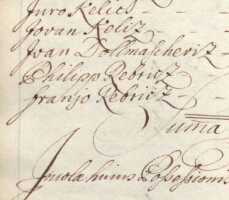 Juro Kelics
Jovan Kelisz
Jvan Dollmascheriz
Philipp Rebricz
franjo Rebricz
Suma
Jncolæ huius Possessionis